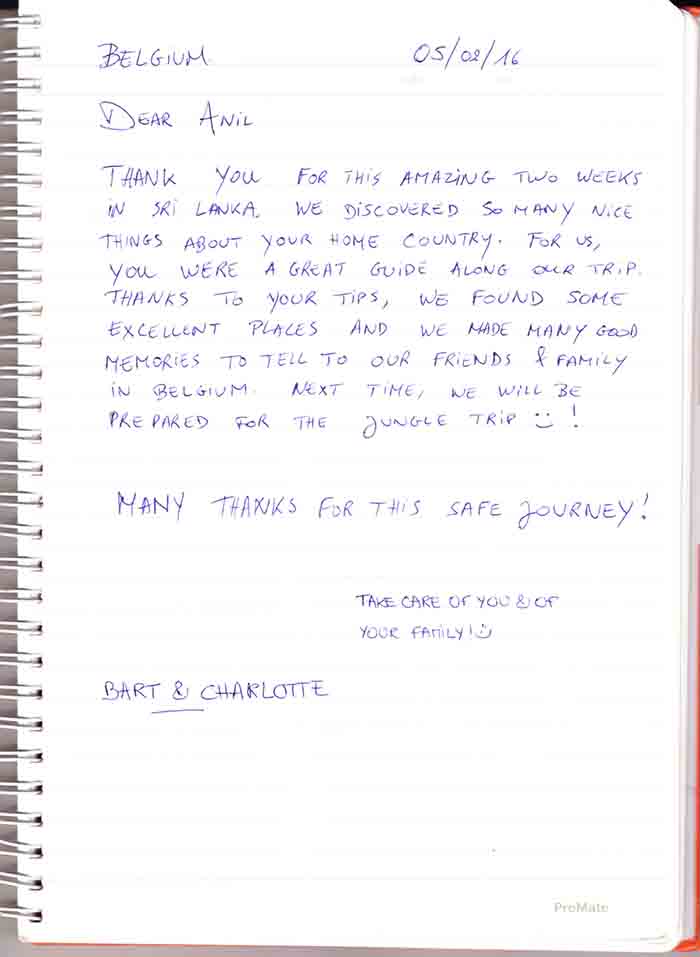 BELGIUM 05/02/16
DEAR ANIL
THANK YOU FOR THIS AMAZING TWO WEEKS
IN SRI LANKA. WE DISCOVERED SO MANY NICE
THINGS ABOUT YOUR HOME COUNTRY. FOR US,
YOU WERE A GREAT GUIDE ALONG OUR TRIP.
THANKS TO YOUR TIPS, WE FOUND SOME
EXCELLENT PLACES AND WE MADE MANY GOOD
MEMORIES TO TELL TO OUR FRIENDS & FAMILY
IN BELGIUM. NEXT TIME, WE WILL BE
PREPARED FOR THE JUNGLE TRIP :) !
MANY THANKS FOR THIS SAFE JOURNEY!
TAKE CARE OF YOU & OF
YOUR FAMILY! :)
BART & CHARLOTTE
ProMate